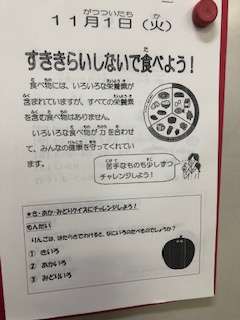 がつついたち か
11月1日（火）
すききらいしないで食べよう！
食べ物には、いろいろな栄養素が
含まれていますが、すべての栄養素
を含む食べ物はありません。
いろいろな食べ物が力を合わせ
て、みんなの健康を守ってくれてい
ます。
苦手なものも少しずつ
チャレンジしよう！
★き・あか・みどりクイズにチャレンジしよう！
もんだい
りんごは、はたらきでわけると、なにいろのたべものでしょうか？
① きいろ
② あかいろ
③ みどりいろ